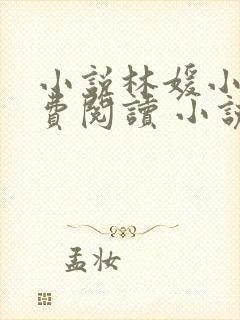 小說林媛小
費閱讀 小說
孟妆